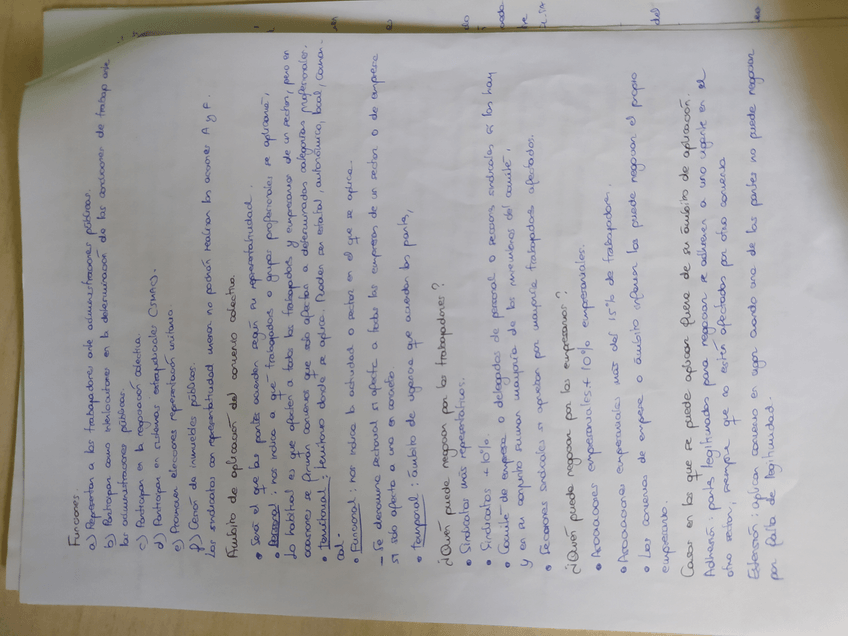 Funciones:
a) Representan a los trabajadores ante administraciones públicas.
b) Participan como interlocutores en la determinación de las condiciones de trabajo ante
las administraciones públicas.
c) Participan en la negociación colectiva.
d) Participan en sistemas extrajudiciales (SMAC).
e) Promueven elecciones representación unitaria.
f) Cesión de inmuebles públicos.
Los sindicatos con representatividad menor no podrán realizar las acciones A y F.
Ámbito de aplicación del convenio colectivo.
• Será el que las partes acuerden según su representatividad.
• Personal: nos indica a qué trabajadores o grupos profesionales se aplicará,
Lo habitual es que afecten a todos los trabajadores y empresarios de un sector, pero en
ocasiones se firman convenios que solo afectan a determinadas categorías profesionales.
• Territorial: territorio donde se aplica. Pueden ser estatal, autonómico, local, comar-
cal.
• Funcional: nos indica la actividad o sector en el que se aplica.
- Se denomina sectorial si afecta a todas las empresas de un sector o de empresa
si solo afecta a una en concreto.
• Temporal: ámbito de vigencia que acuerden las partes,
¿Quién puede negociar por los trabajadores?
• Sindicatos más representativos.
• Sindicatos +10%.
• Comité de empresa o delegados de personal o secciones sindicales si las hay
y en su conjunto suman mayoría de los miembros del comité,
• Secciones sindicales si aprueban por mayoría trabajadores afectados.
¿Quién puede negociar por los empresarios?
• Asociaciones empresariales + 10% empresariales.
• Asociaciones empresariales más del 15% de trabajadores.
• Los convenios de empresa o ámbito inferior los puede negociar el propio
empresario.
Casos en los que se puede aplicar fuera de su ámbito de aplicación.
Adhesión: partes legitimadas para negociar se adhieren a uno vigente en el
otro sector, siempre que no estén afectados por otro convenio
Extensión: aplican convenio en vigor cuando una de las partes no puede negociar
por falta de legitimidad.